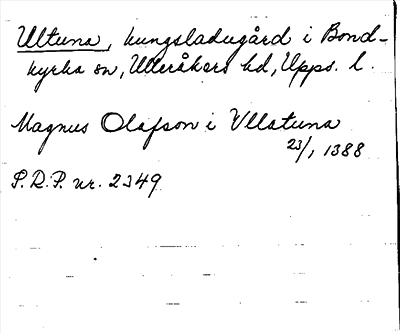 Ultuna, kungsladugård i Bond-
kyrka sn, Ulleråkers hd, Upps. l.
Magnus Olafson i Vllatuna
23/1 1388
S.R.P. nr. 2349